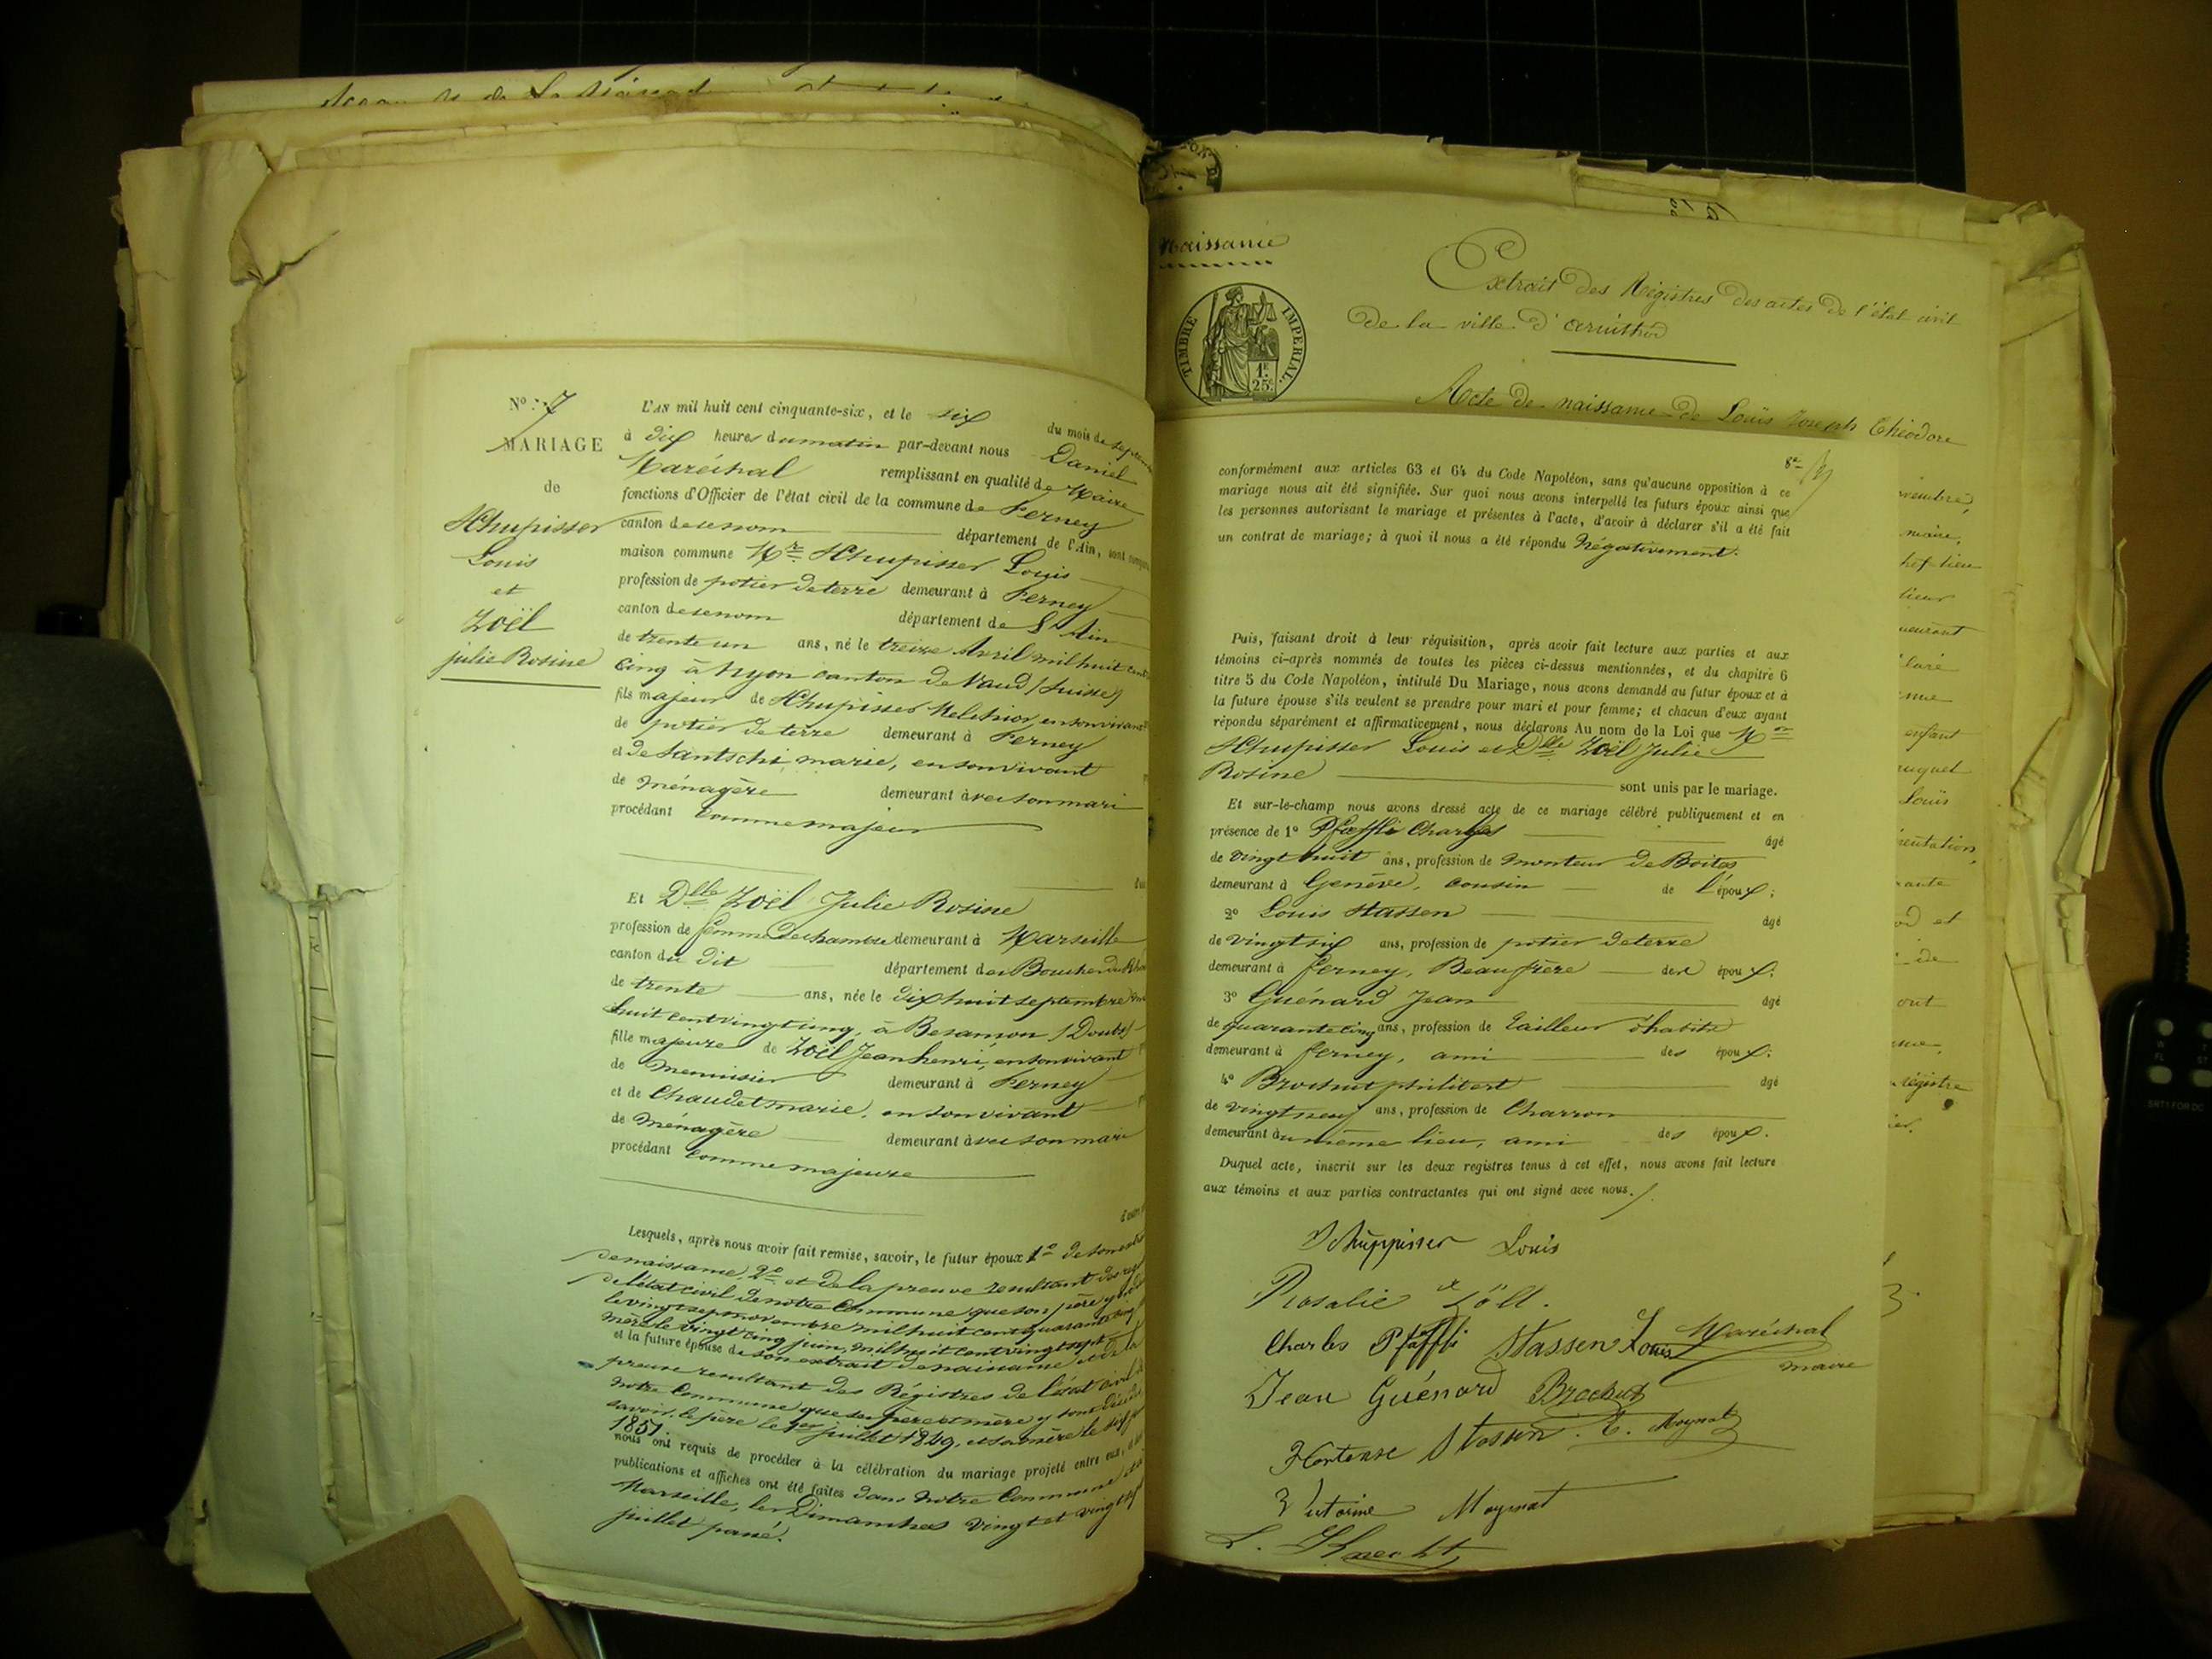 N° 7
MARIAGE
de
Schupisser
Louis
et
Zoël
julie Rosine
L'AN mil huit cent cinquante-six, et le six du mois de
à dix heures du matin par-devant nous Daniel
Maréchal remplissant en qualité de Maire
fonctions d'Officier de l'état civil de la commune de Ferney
canton de ce nom département de l'Ain, sont
maison commune Mr Schupisser Louis
profession de potier de terre demeurant à Ferney
canton de ce nom département de l'Ain
de trente un ans, né le treize Avril mil huit cent
cinq à Nyon canton de Vaud (Suisse)
fils majeur de Schupisser Melchior, en son vivant
de potier de terre demeurant à Ferney
et de Santschi marie, en son vivant
de ménagère demeurant avec son mari
procédant comme majeur
Et Dlle Zoël Julie Rosine
profession de femme de chambre demeurant à Marseille
canton du dit département des Bouches du
de trente ans, née le dix huit septembre
huit cent vingt cinq, à Besançon (Doubs)
fille majeure de Zoël Jean henri, en son vivant
de menuisier demeurant à Ferney
et de Chaudet marie, en son vivant
de ménagère demeurant avec son mari
procédant comme majeure
Lesquels, après nous avoir fait remise, savoir, le futur époux 1° de son
de naissance, 2° et de la preuve résultant des
de l'état civil de notre Commune que son père y
le vingt sept novembre mil huit cent quarante
mère le vingt cinq juin, mil huit cent vingt sept
et la future épouse de son extrait de naissance et de la
preuve résultant des Régistres de l'état civil
notre Commune que ses père et mère y sont
savoir, le père le 1er juillet 1849, et sa mère le
1851.
nous ont requis de procéder à la célébration du mariage projeté entre eux,
publications et affiches ont été faites dans notre Commune
Marseille, les Dimanches vingt et vingt
juillet passé.
Naissance
Extrait des Régistres des actes de l'état civil
de la ville d'
TIMBRE IMPERIAL.
1F. 25c.
Acte de naissance de Louis Joseph Théodore
conformément aux articles 63 et 64 du Code Napoléon, sans qu'aucune opposition à ce
mariage nous ait été signifiée. Sur quoi nous avons interpellé les futurs époux ainsi que
les personnes autorisant le mariage et présentes à l'acte, d'avoir à déclarer s'il a été fait
un contrat de mariage; à quoi il nous a été répondu Négativement.
Puis, faisant droit à leur réquisition, après avoir fait lecture aux parties et aux
témoins ci-après nommés de toutes les pièces ci-dessus mentionnées, et du chapitre 6
titre 5 du Code Napoléon, intitulé Du Mariage, nous avons demandé au futur époux et à
la future épouse s'ils veulent se prendre pour mari et pour femme; et chacun d'eux ayant
répondu séparément et affirmativement, nous déclarons Au nom de la Loi que Mr
Schupisser Louis et Dlle Zoël Julie
Rosine sont unis par le mariage.
Et sur-le-champ nous avons dressé acte de ce mariage célébré publiquement et en
présence de 1° Pfaffli Charles âgé
de vingt huit ans, profession de monteur de Boites
demeurant à Genève, cousin de l'époux;
2° Louis Stassen âgé
de vingt six ans, profession de potier de terre
demeurant à ferney, Beaufrère de époux;
3° Guénard Jean âgé
de quarante cinq ans, profession de tailleur d'habits
demeurant à ferney, ami des époux;
4° Brochut philibert âgé
de vingt neuf ans, profession de Charron
demeurant au même lieu, ami des époux.
Duquel acte, inscrit sur les deux registres tenus à cet effet, nous avons fait lecture
aux témoins et aux parties contractantes qui ont signé avec nous.
Schüppisser Louis
Rosalie Zöll.
Charles Pfaffli Stassen Louis Maréchal
maire
Jean Guénard Brochut
Hortense Stassen. E. Moynat
Victorine Moynat